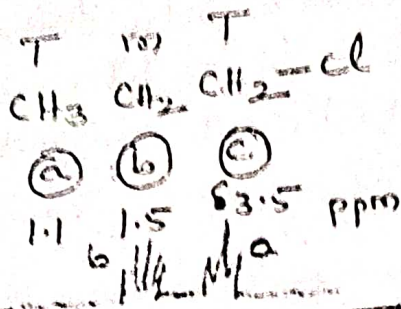 T (m) T
CH3 CH2 CH2-Cl
a b c
1.1 1.5 3.5 ppm
b a